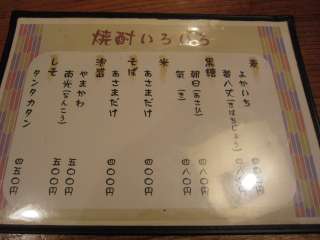 焼酎いろいろ
麦
よかいち
喜八丈(きはちじょう)
黒糖
朝日(あさひ) 四八〇円
米
気(き) 四八〇円
そば
あさまだけ 四〇〇円
泡盛
あさまだけ 四〇〇円
やまかわ 五〇〇円
南光(なんこう) 五〇〇円
しそ
タンタカタン 四五〇円